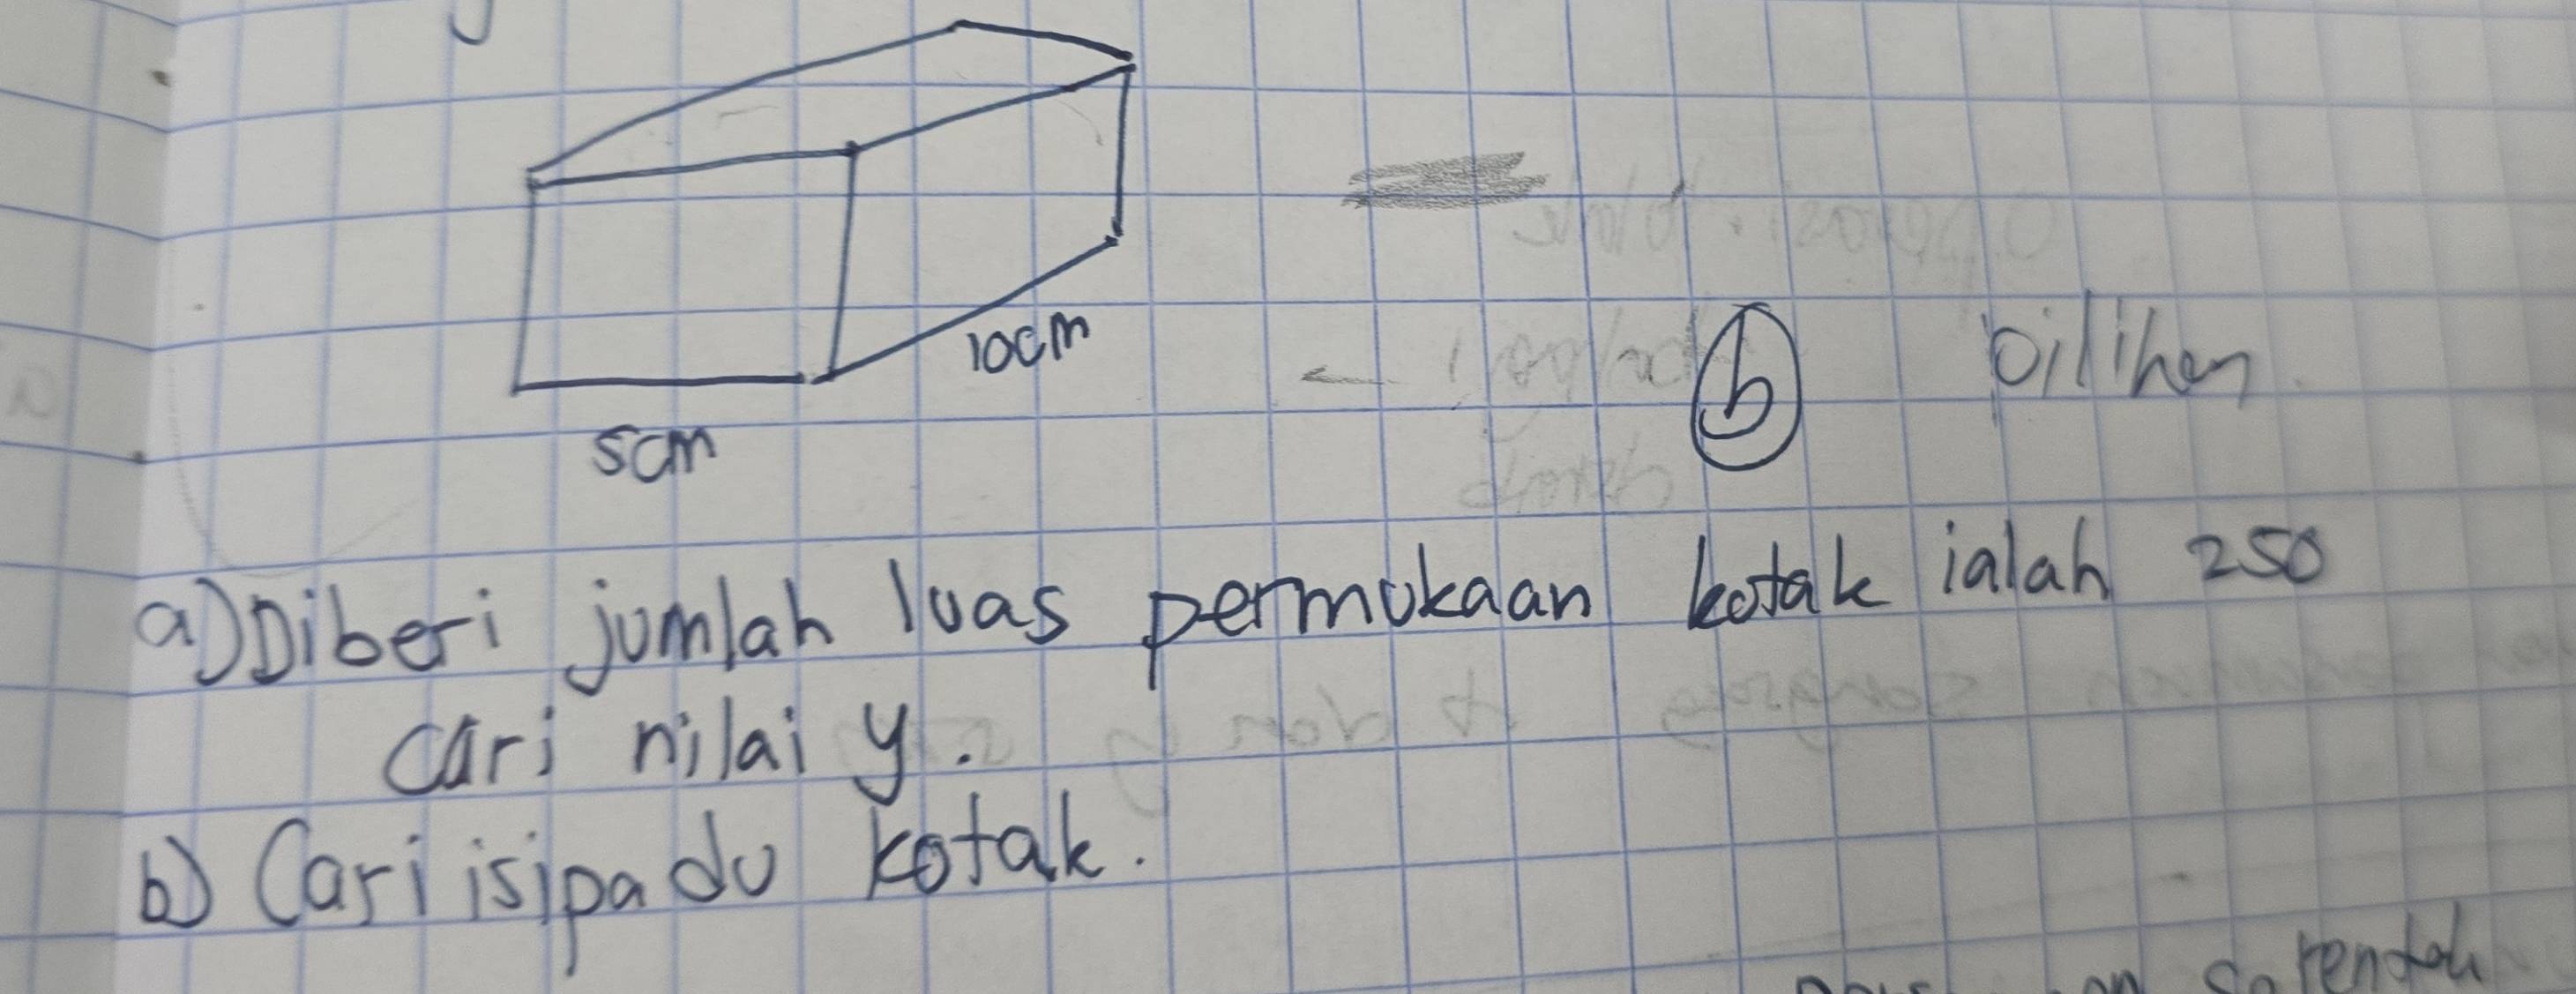 10cm
5cm
b
pilihan
a) Diberi jumlah luas permukaan kotak ialah 250
cari nilai y.
b) Cari isipadu kotak.